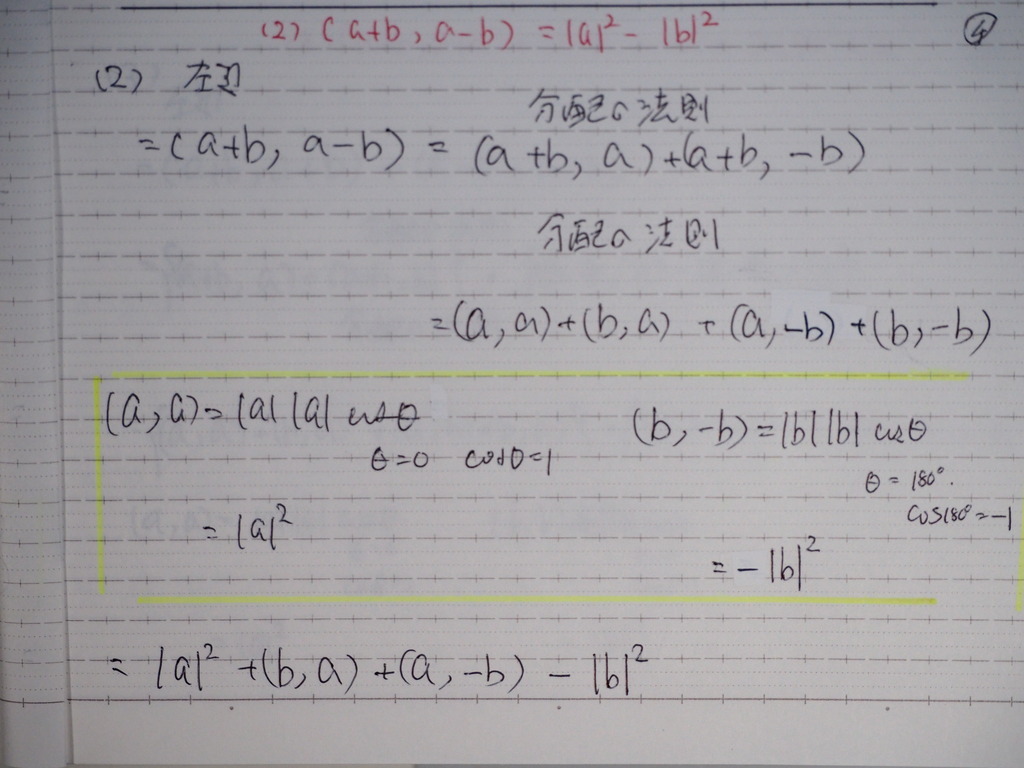 (2) (a+b, a-b) = |a|² - |b|²
④
(2) 左辺
分配の法則
= (a+b, a-b) = (a+b, a)+(a+b, -b)
分配の法則
= (a, a)+(b, a) + (a, -b) + (b, -b)
(a, a) = |a| |a| cosθ
θ=0 cosθ=1
= |a|²
(b, -b) = |b| |b| cosθ
θ = 180°.
cos180° = -1
= - |b|²
= |a|² +(b, a) +(a, -b) - |b|²